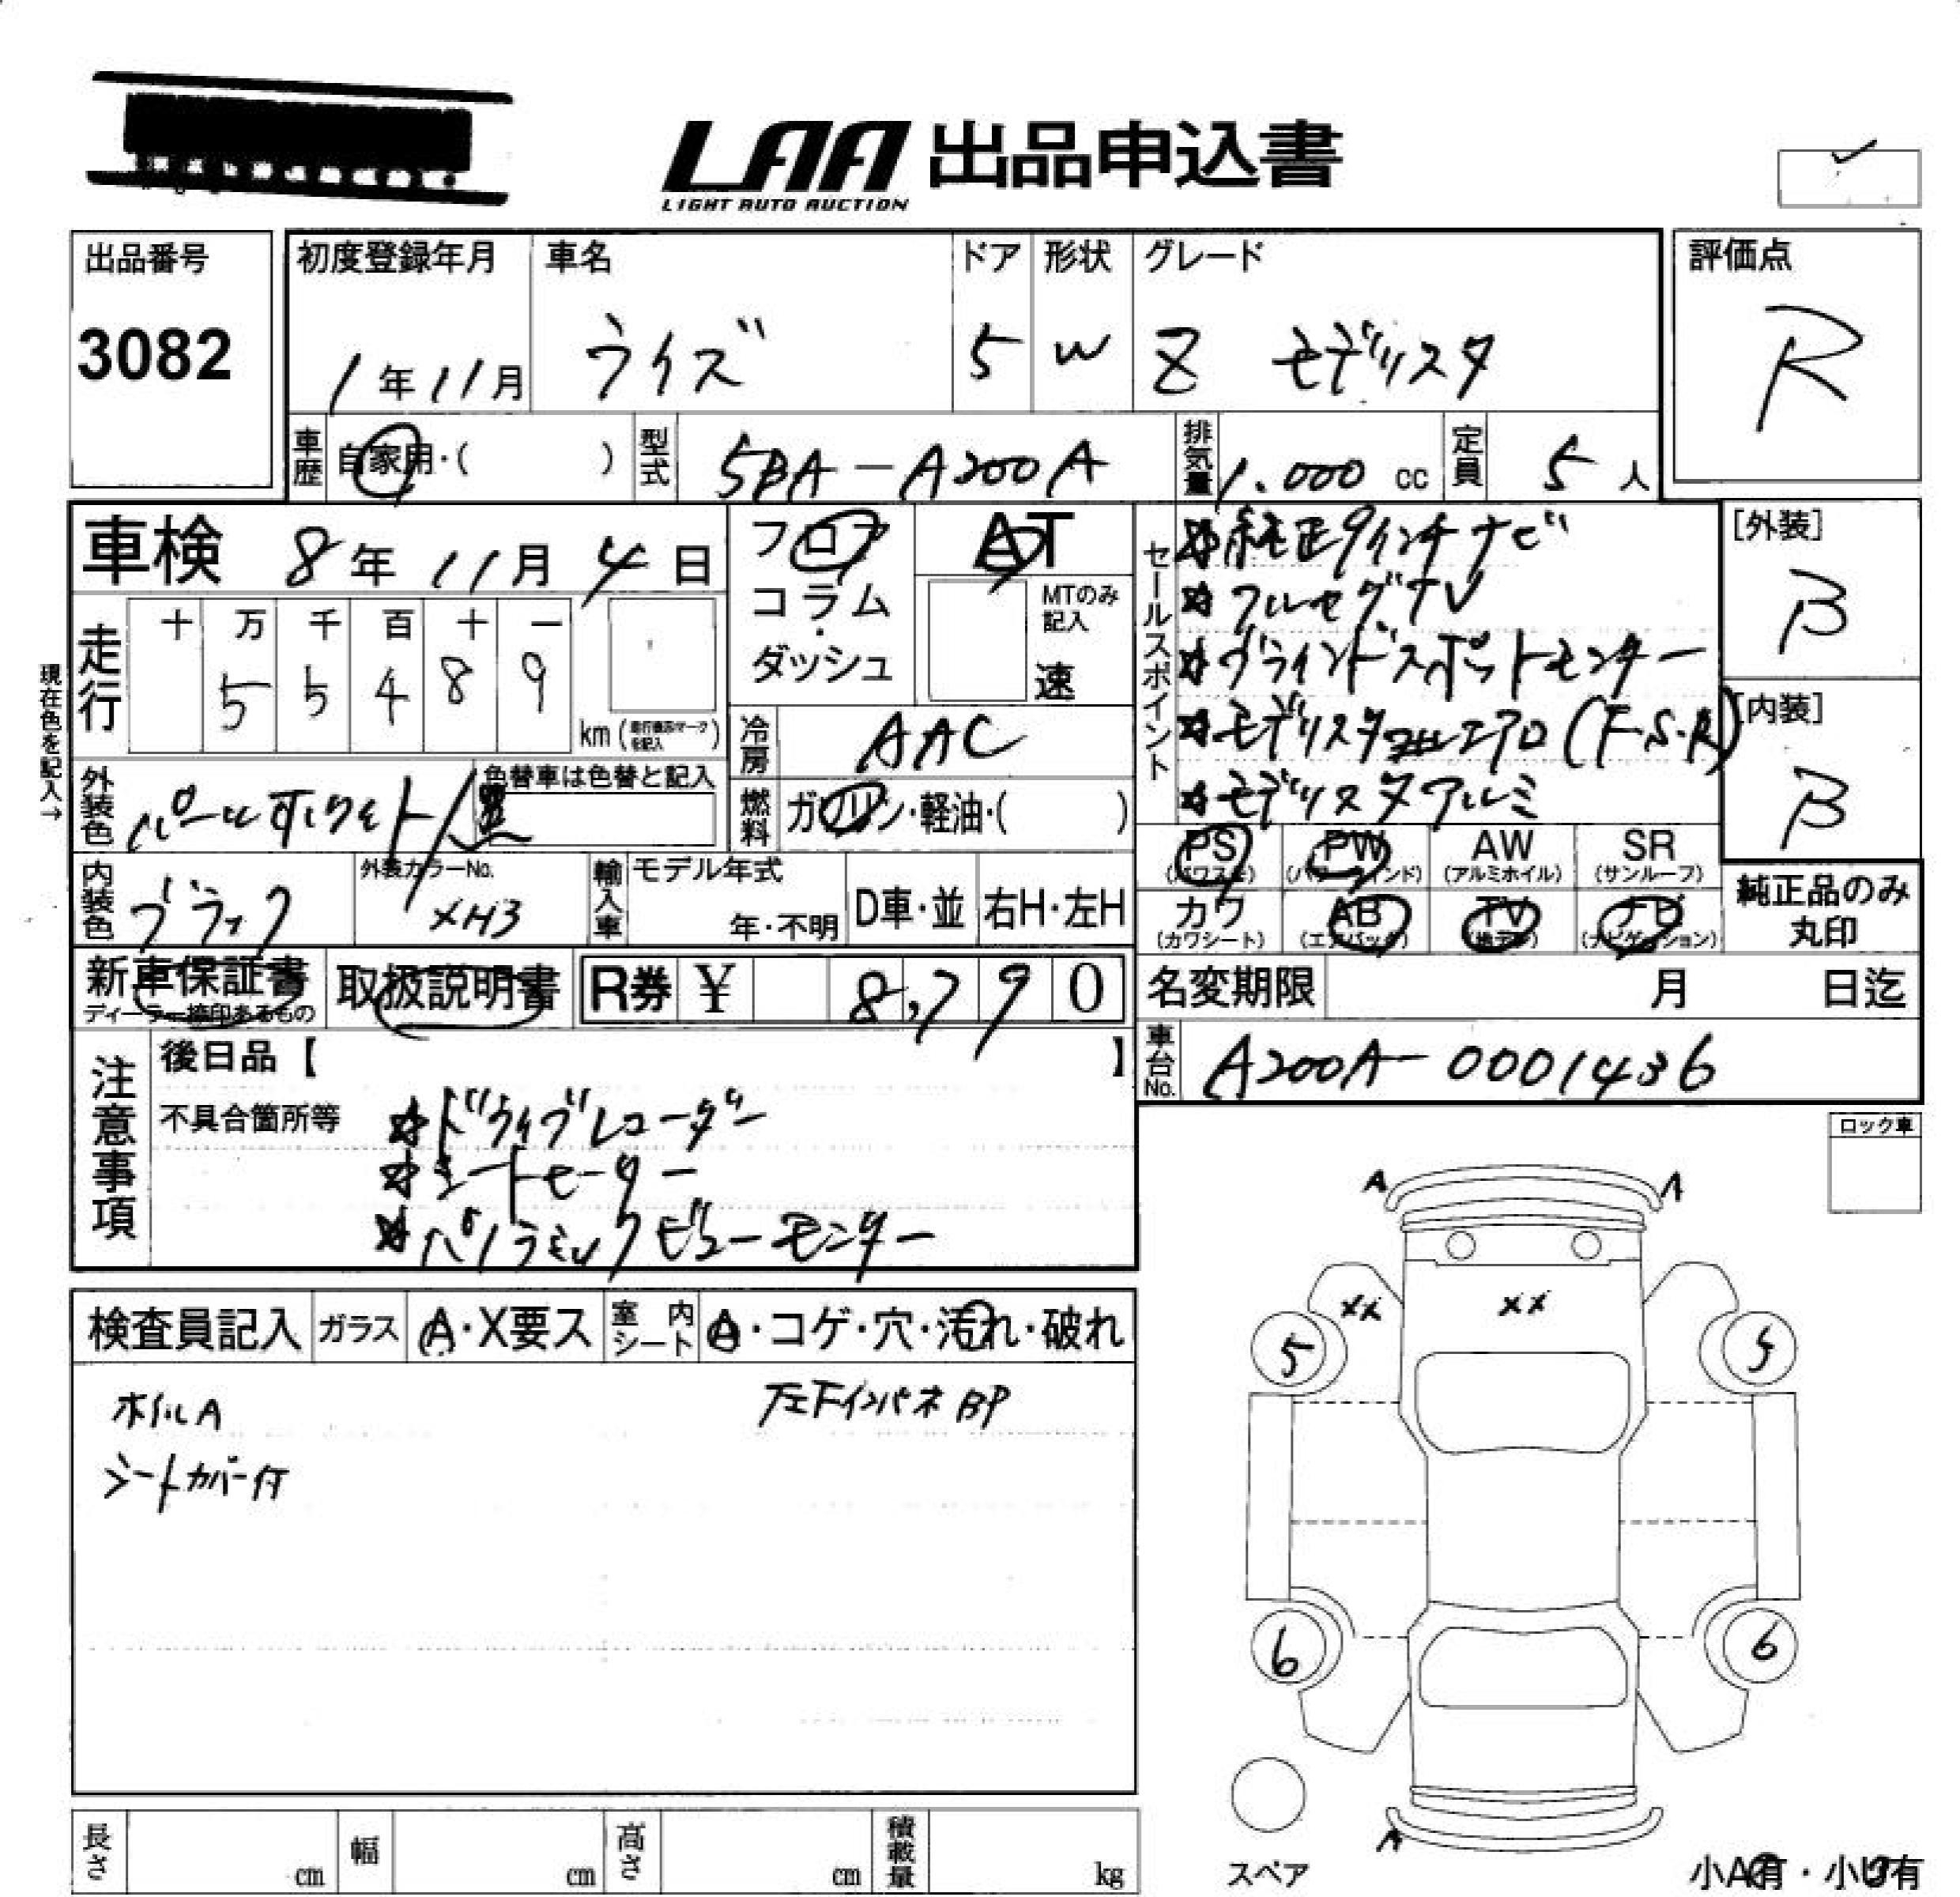 LAA 出品申込書
LIGHT AUTO AUCTION
出品番号
3082
初度登録年月
1年11月
車名
ライズ
ドア
5
形状
W
グレード
Z モデリスタ
評価点
R
車歴
自家用・( )
型式
5BA-A200A
排気量
1.000 cc
定員
5人
車検 8年11月4日
フロア
コラム・ダッシュ
AT
MTのみ記入
速
セールスポイント
☆純正9インチナビ
☆フルセグTV
☆ブラインドスポットモニター
☆モデリスタフルエアロ(F・S・R)
☆モデリスタアルミ
[外装]
B
[内装]
B
現在色を記入→
走行
十 万 千 百 十 一
5 5 4 8 9
km(走行表示マークを記入)
冷房
AAC
燃料
ガソリン・軽油・( )
外装色
パールホワイト/黒
色替車は色替と記入
内装色
ブラック
外装カラーNo.
XH3
輸入車
モデル年式
年・不明
D車・並
右H・左H
PS
(パワステ)
PW
(パワーウィンド)
AW
(アルミホイル)
SR
(サンルーフ)
カワ
(カワシート)
AB
(エアバック)
TV
(地デジ)
ナビ
(ナビゲーション)
純正品のみ
丸印
新車保証書
ディーラー捺印あるもの
取扱説明書
R券 ¥ 8,790
名変期限 月 日迄
車台No.
A200A-0001436
注意事項
後日品【 】
不具合箇所等
☆ドライブレコーダー
☆シートヒーター
☆パノラミックビューモニター
ロック車
検査員記入
ガラス
A・X要ス
室内シート
A・コゲ・穴・汚れ・破れ
ホイルA
左下インパネBP
シートカバー付
A A
XX XX
5 5
6 6
A
スペア
小A有・小U有
長さ cm
幅 cm
高さ cm
積載量 kg